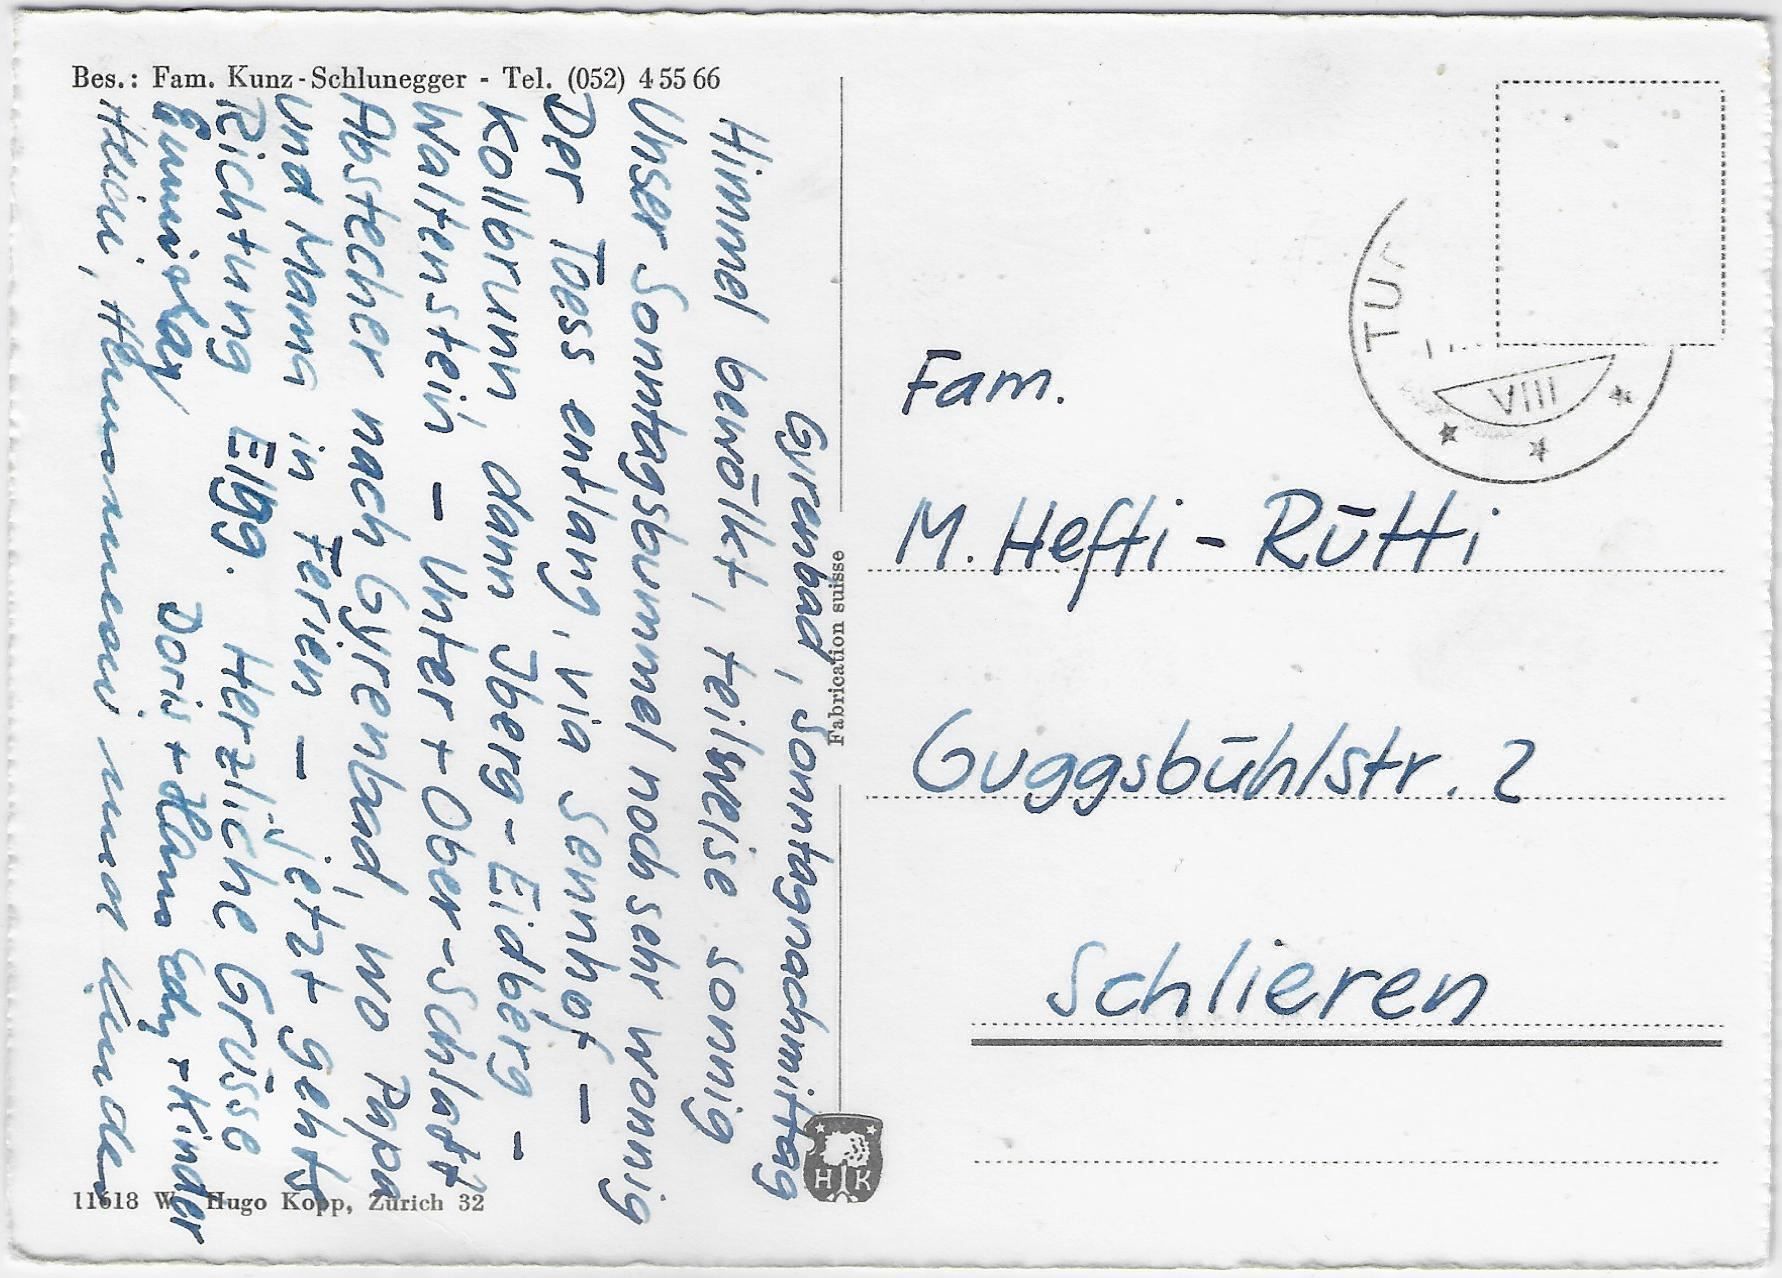 Bes.: Fam. Kunz-Schlunegger - Tel. (052) 4 55 66
Gyrenbad, Sonntagnachmittag
Himmel bewölkt, teilweise sonnig
Unser Sonntagsbummel noch sehr wonnig
Der Töess entlang, via Sennhof –
Kollbrunn dann Iberg - Eidberg –
Waltenstein – Unter + Ober-Schlatt
Abstecher nach Gyrenbad, wo Papa
und Mama in Ferien – jetzt gehts
Richtung Elgg. Herzliche Grüsse
Doris + Hans Edy + Kinder
Heini, und
11618 W. Hugo Kopp, Zürich 32
Fabrication suisse
H K
TU
VIII
Fam.
M. Hefti - Rütti
Guggsbühlstr. 2
Schlieren